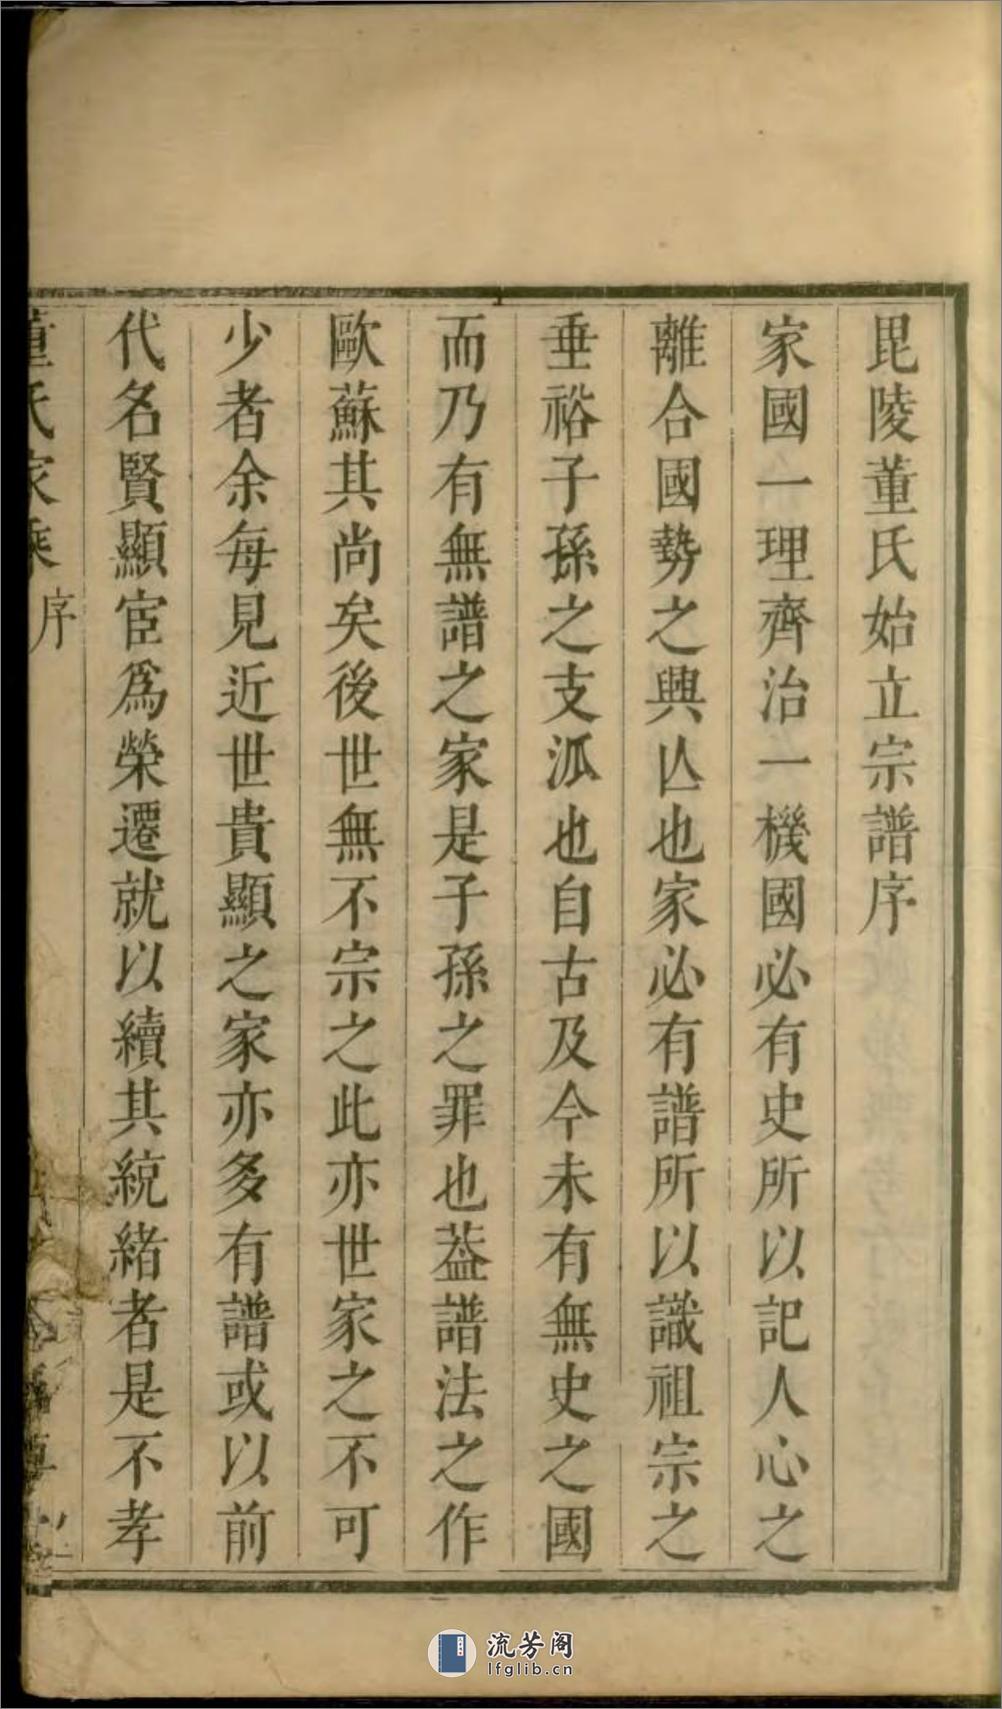 毘陵董氏始立宗譜序
家國一理齊治一機國必有史所以記人心之
離合國勢之興亾也家必有譜所以識祖宗之
垂裕子孫之支泒也自古及今未有無史之國
而乃有無譜之家是子孫之罪也葢譜法之作
歐蘇其尚矣後世無不宗之此亦世家之不可
少者余每見近世貴顯之家亦多有譜或以前
代名賢顯宦爲榮遷就以續其統緒者是不孝
董氏家乘 序
流芳阁
lfglib.cn